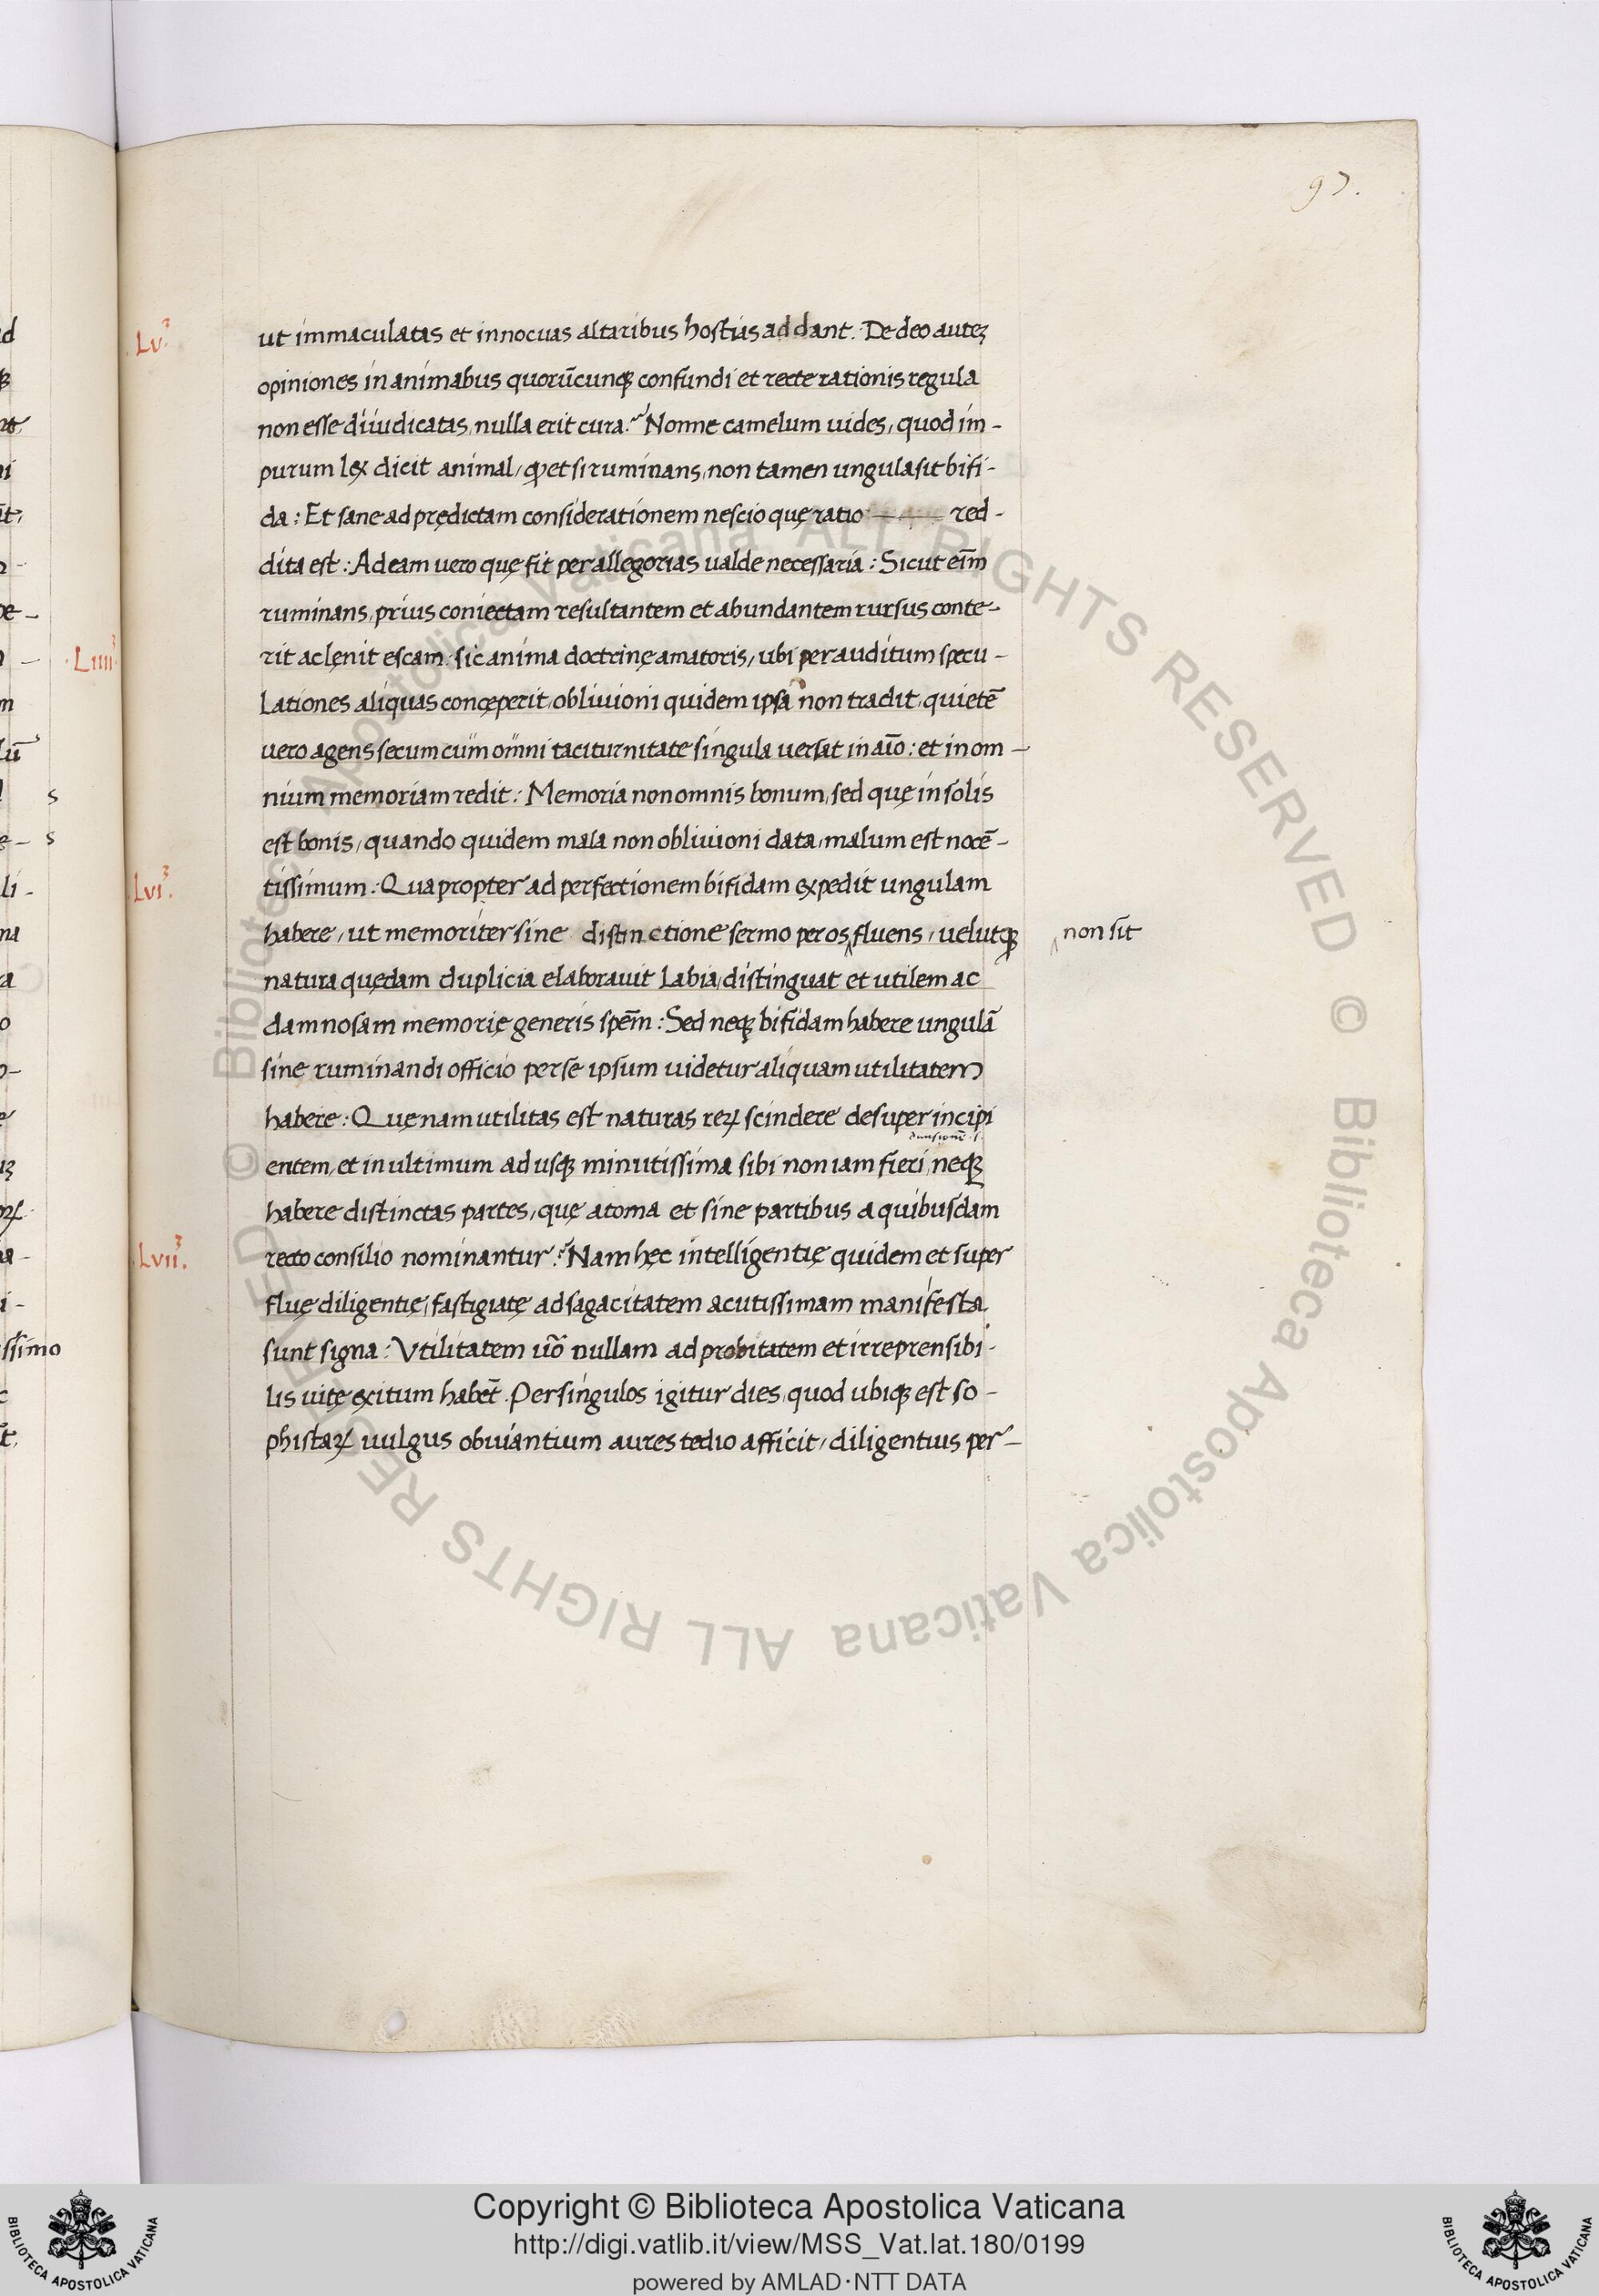 97.
.Lv.3
ut immaculatas et innocuas altaribus hostias addant. De deo autez
opiniones in animabus quorūcunqꝫ confundi et recte rationis regula
non esse diiudicatas, nulla erit cura? Nonne camelum uides, quod im-
purum lex dicit animal, ꝙ et si ruminans, non tamen ungula sit bifi-
da: Et sane ad prędictam considerationem nescio quę ratio red-
dita est: Ad eam uero quę fit per allegorias ualde necessaria: Sicut eīm
ruminans, prius coniectam resultantem et abundantem rursus conte-
rit ac lęnit escam. sic anima doctrinę amatoris, ubi per auditum specu-
lationes aliquas concęperit, obliuioni quidem ipsa non tradit, quietē
uero agens secum cum omni taciturnitate singula uersat in aīo: et in om-
nium memoriam redit: Memoria non omnis bonum, sed quę in solis
est bonis, quando quidem mala non obliuioni data, malum est nocē-
.Lvi.3
tissimum: Quapropter ad perfectionem bifidam expedit ungulam
habere, ut memoriter sine distinctione sermo per os fluens, uelutqꝫ
non sit
natura quędam duplicia elaborauit labia, distinguat et utilem ac
damnosam memorię generis spēm: Sed neqꝫ bifidam habere ungulā
sine ruminandi officio per se ipsum uidetur aliquam utilitatem
habere: Quęnam utilitas est naturas reꝝ scindere desuper incipi
entem, et in ultimum ad usqꝫ minutissima sibi non iam fieri, neqꝫ
habere distinctas partes, quę atoma et sine partibus a quibusdam
.Lvii.3
recto consilio nominantur? Nam hęc intelligentię quidem et super
fluę diligentię, fastigiatę ad sagacitatem acutissimam manifesta
sunt signa: Vtilitatem uō nullam ad probitatem et irreprensibi-
lis uitę exitum habēt. Per singulos igitur dies, quod ubiqꝫ est so-
phistaꝝ uulgus obuiantium aures tedio afficit, diligentius per-
.Liiii.3
s
s
ssimo
Copyright © Biblioteca Apostolica Vaticana
http://digi.vatlib.it/view/MSS_Vat.lat.180/0199
powered by AMLAD·NTT DATA
BIBLIOTECA APOSTOLICA VATICANA
BIBLIOTECA APOSTOLICA VATICANA
© Biblioteca Apostolica Vaticana ALL RIGHTS RESERVED © Biblioteca Apostolica Vaticana ALL RIGHTS RESERVED